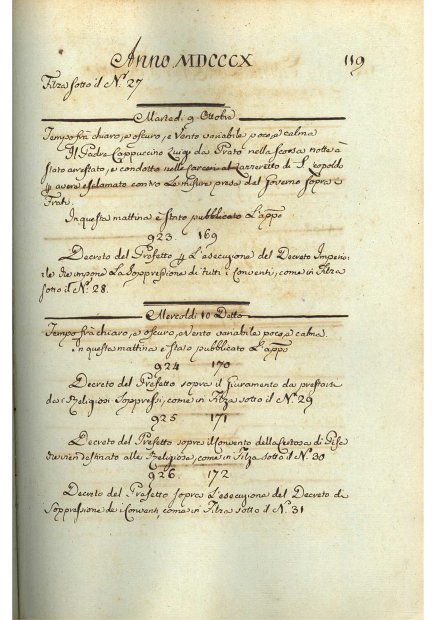 Anno MDCCCX 119
Filza sotto il N.º 27
Martedì 9 Ottobre
Tempo frà chiaro, e oscuro, e Vento variabile poco, e calma
Il Padre Cappuccino Luigi da Prato nella scorsa notte è
stato arrestato, e condotto nelle carceri al Lazzeretto di S. Leopoldo
p avere esclamato contro Le misure prese dal Governo sopra i
Frati.
In questa mattina è stato pubblicato L'app.º
923 169
Decreto del Prefetto p L'esecuzione del Decreto Imperia-
le che impone La Soppressione di tutti i Conventi, come in Filza
sotto il N.º 28.
Mercoldì 10 Detto
Tempo frà chiaro, e oscuro, e Vento variabile poco, e calma.
In questa mattina è stato pubblicato L'app.º
924 170
Decreto del Prefetto sopra il Giuramento da prestarsi
dai Religiosi Soppressi, come in Filza sotto il N.º 29
925 171
Decreto del Prefetto sopra il Convento della Certosa di Pisa
che vien destinato alle Religiose, come in Filza sotto il N.º 30
926 172
Decreto del Prefetto sopra L'esecuzione del Decreto di
Soppressione dei Conventi, come in Filza sotto il N.º 31